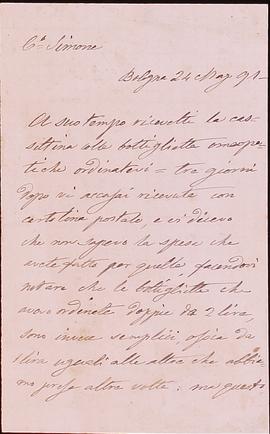 Cº Simone
Bologna 24 Mag 91-
A suo tempo ricevetti la cas-
settina alla bottigliette omeopa-
tiche ordinatevi = tre giorni
dopo vi accusai ricevuta con
cartolina postale, e vi dicevo
che non sapevo la spesa che
avete fatto per quelle, facendovi
notare che le bottigliette che
avevo ordinate doppie da 2 lire,
sono invece semplici, ossia da
1 lira uguali alle altre che abbia-
mo prese altre volte: ma questo